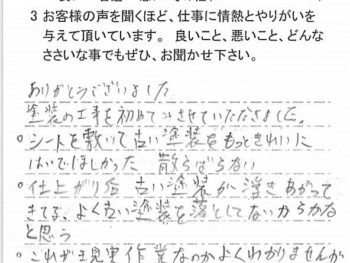 3 お客様の声を聞くほど、仕事に情熱とやりがいを
与えて頂いています。 良いこと、悪いこと、どんな
ささいな事でもぜひ、お聞かせ下さい。
ありがとうございました
塗装の工事を初めてさせていただきました。
○シートを敷いて古い塗装をもっときれいに
はいでほしかった 散らばらない
○仕上がり后 古い塗装が浮きあがって
きてる、よく古い塗装を落としてないからかな
と思う
○これが現実作業なのかよくわかりませんが